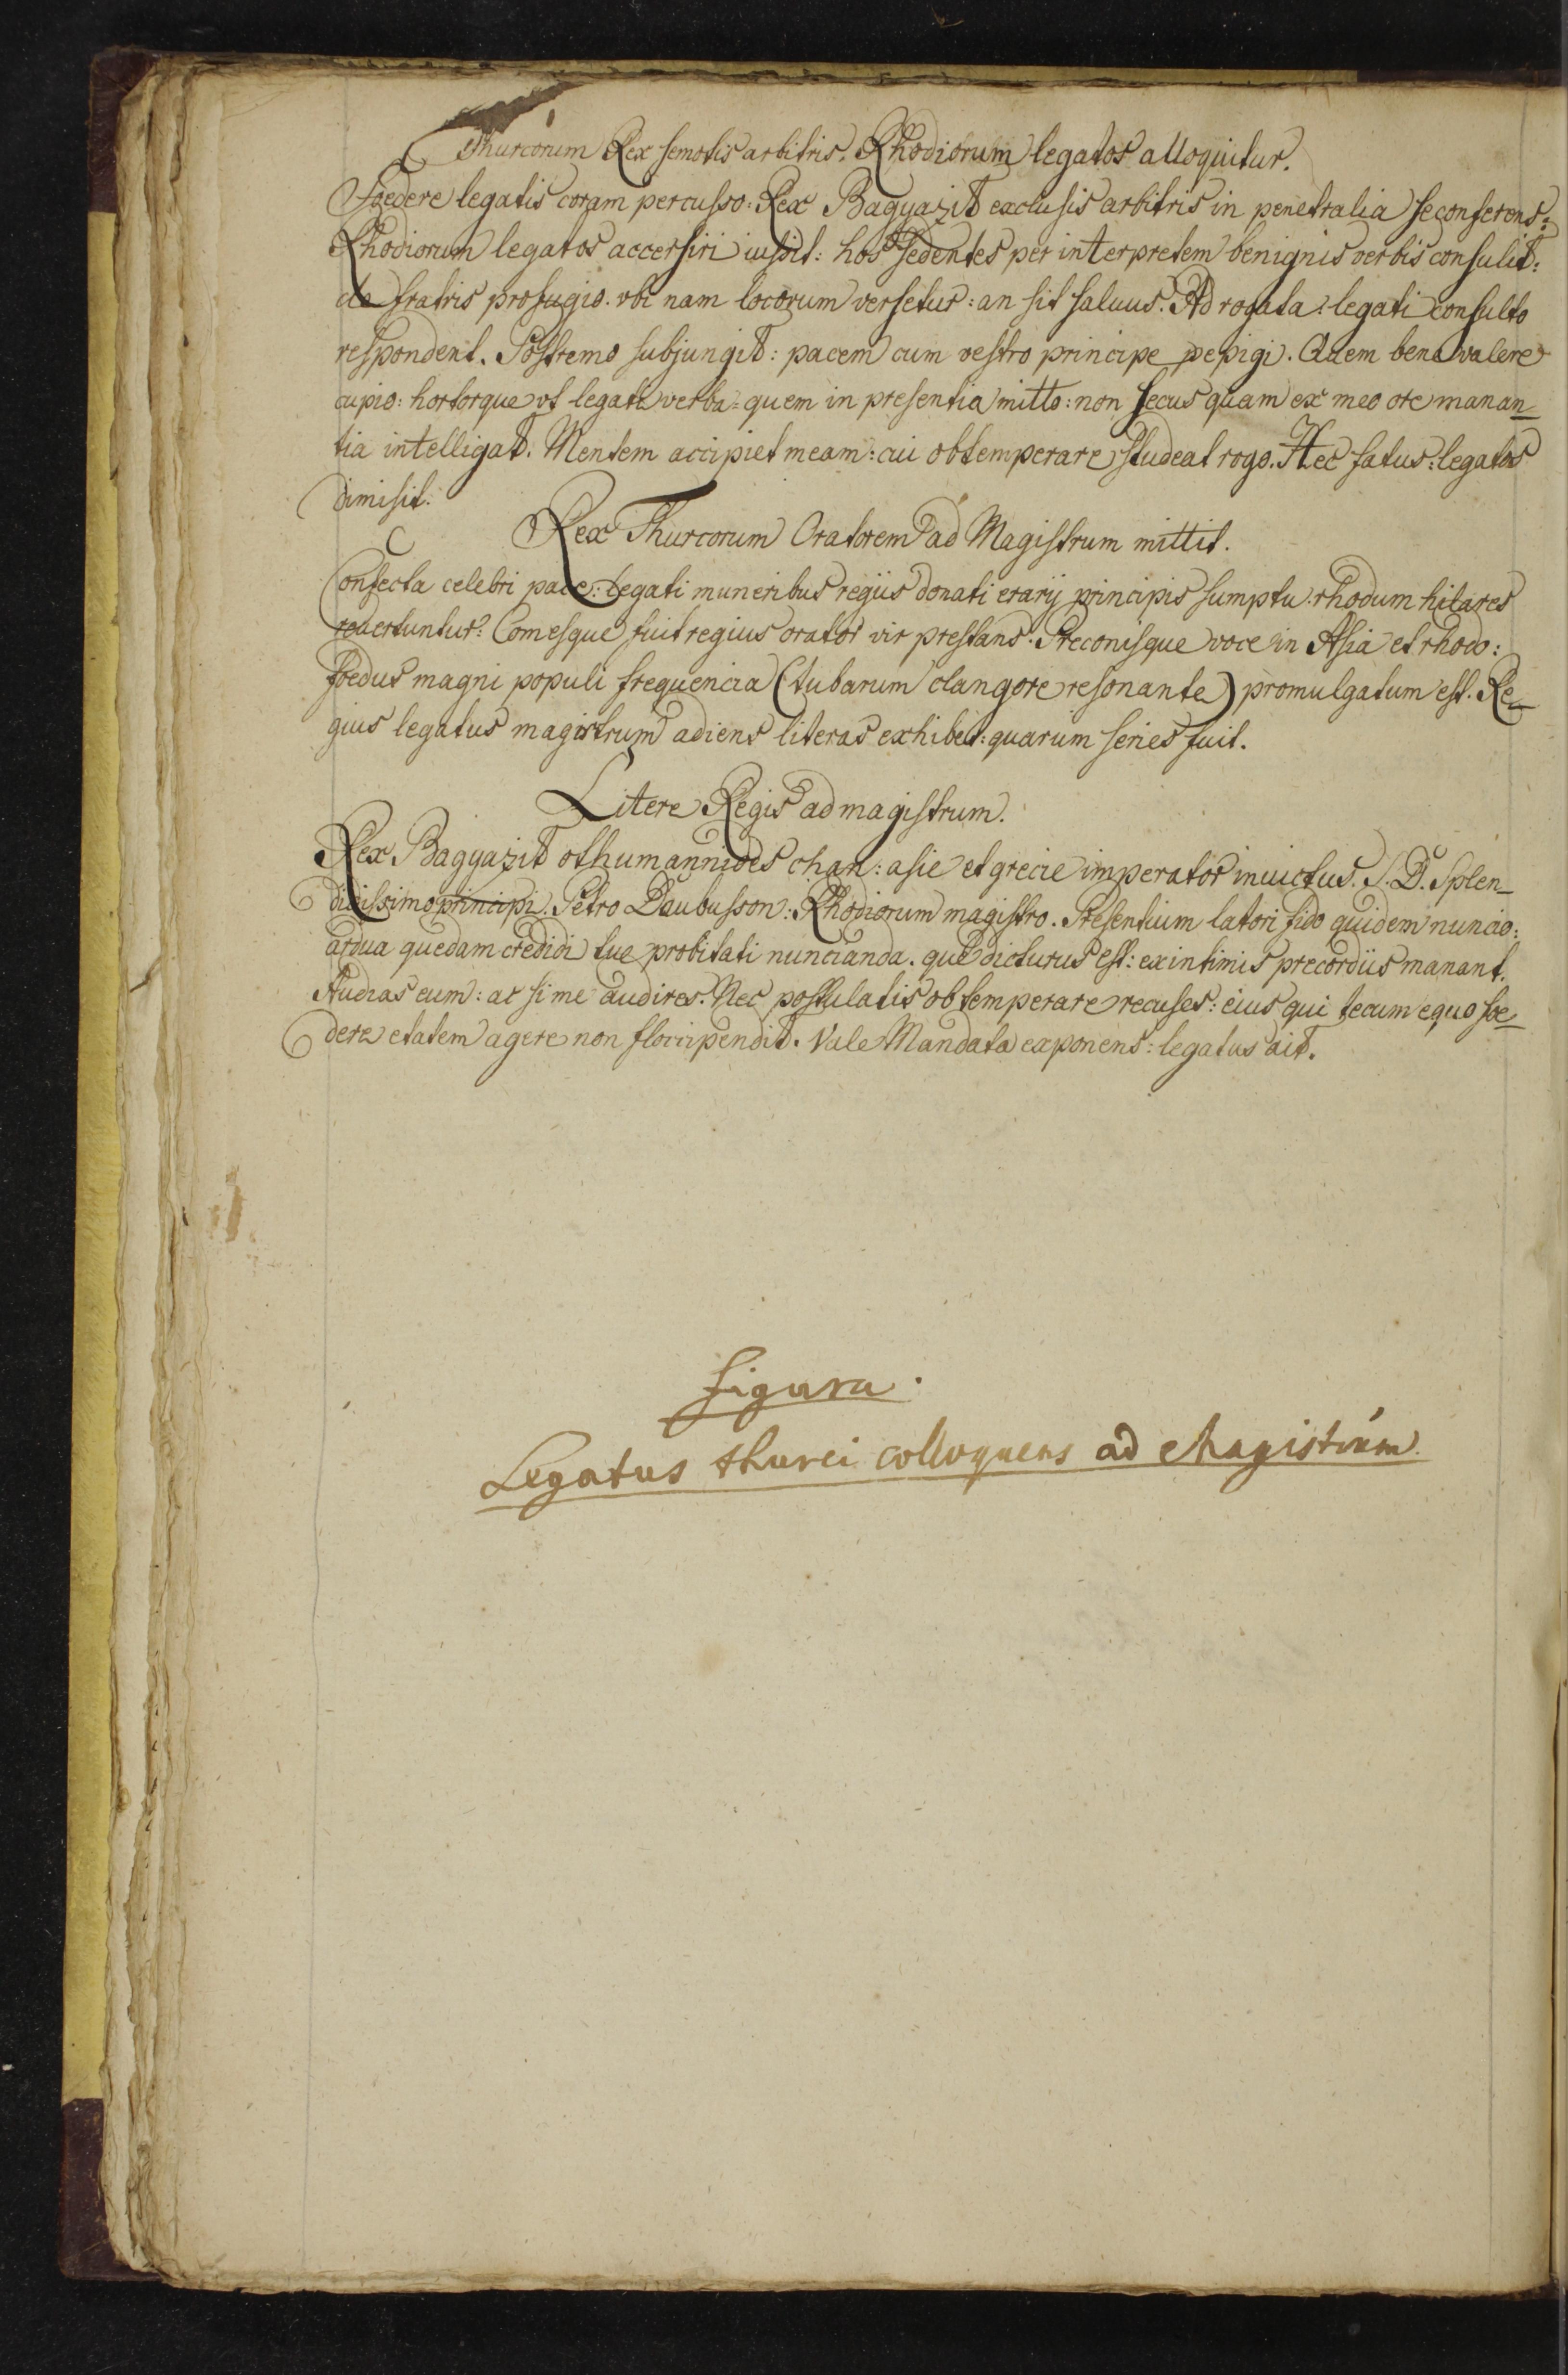 Thurcorum Rex semotis arbitris. Rhodiorum legatos alloquitur.
Foedere legatis coram percusso: Rex Bagyazit exclusis arbitris in penetralia se conferens:
Rhodiorum legatos accersiri iussit: hos sedentes per interpretem benignis verbis consulit:
de fratris profugio. vbi nam locorum versetur: an sit saluus. Ad rogata: legati consulto
respondent. Postremo subjungit: pacem cum vestro principe pepigi. Quem bene valere
cupio: hortorque vt legati verba: quem in presentia mitto: non secus quam ex meo ore manan_
tia intelligat. Mentem accipiet meam: cui obtemperare studeat rogo. Hec fatus: legatos
dimisit.
Rex Thurcorum Oratorem ad Magistrum mittit.
Confecta celebri pace: legati muneribus regiis donati erarij principis sumptu: rhodum hilares
reuertuntur: Comesque fuit regius orator vir prestans. Preconisque voce in Asia et rhodo:
foedus magni populi frequencia (tubarum clangore resonante) promulgatum est. Re_
gius legatus magistrum adiens literas exhibet: quarum series fuit.
Litere Regis ad magistrum.
Rex Bagyazit othumannides chan: asie et grecie imperator inuictus. S. D. Splen_
didissimo principi. Petro Daubusson: Rhodiorum magistro. Presentium latori fido quidem nuncio:
ardua quedam credidi tue probitati nuncianda. que dicturus est: ex intimis precordiis manant.
Audias eum: ac si me audires. Nec postulatis obtemperare recuses: eius qui tecum equo foe_
dere etatem agere non floccipendit. Vale Mandata exponens: legatus ait.
figura.
Legatus thurci colloquens ad Magistrum.